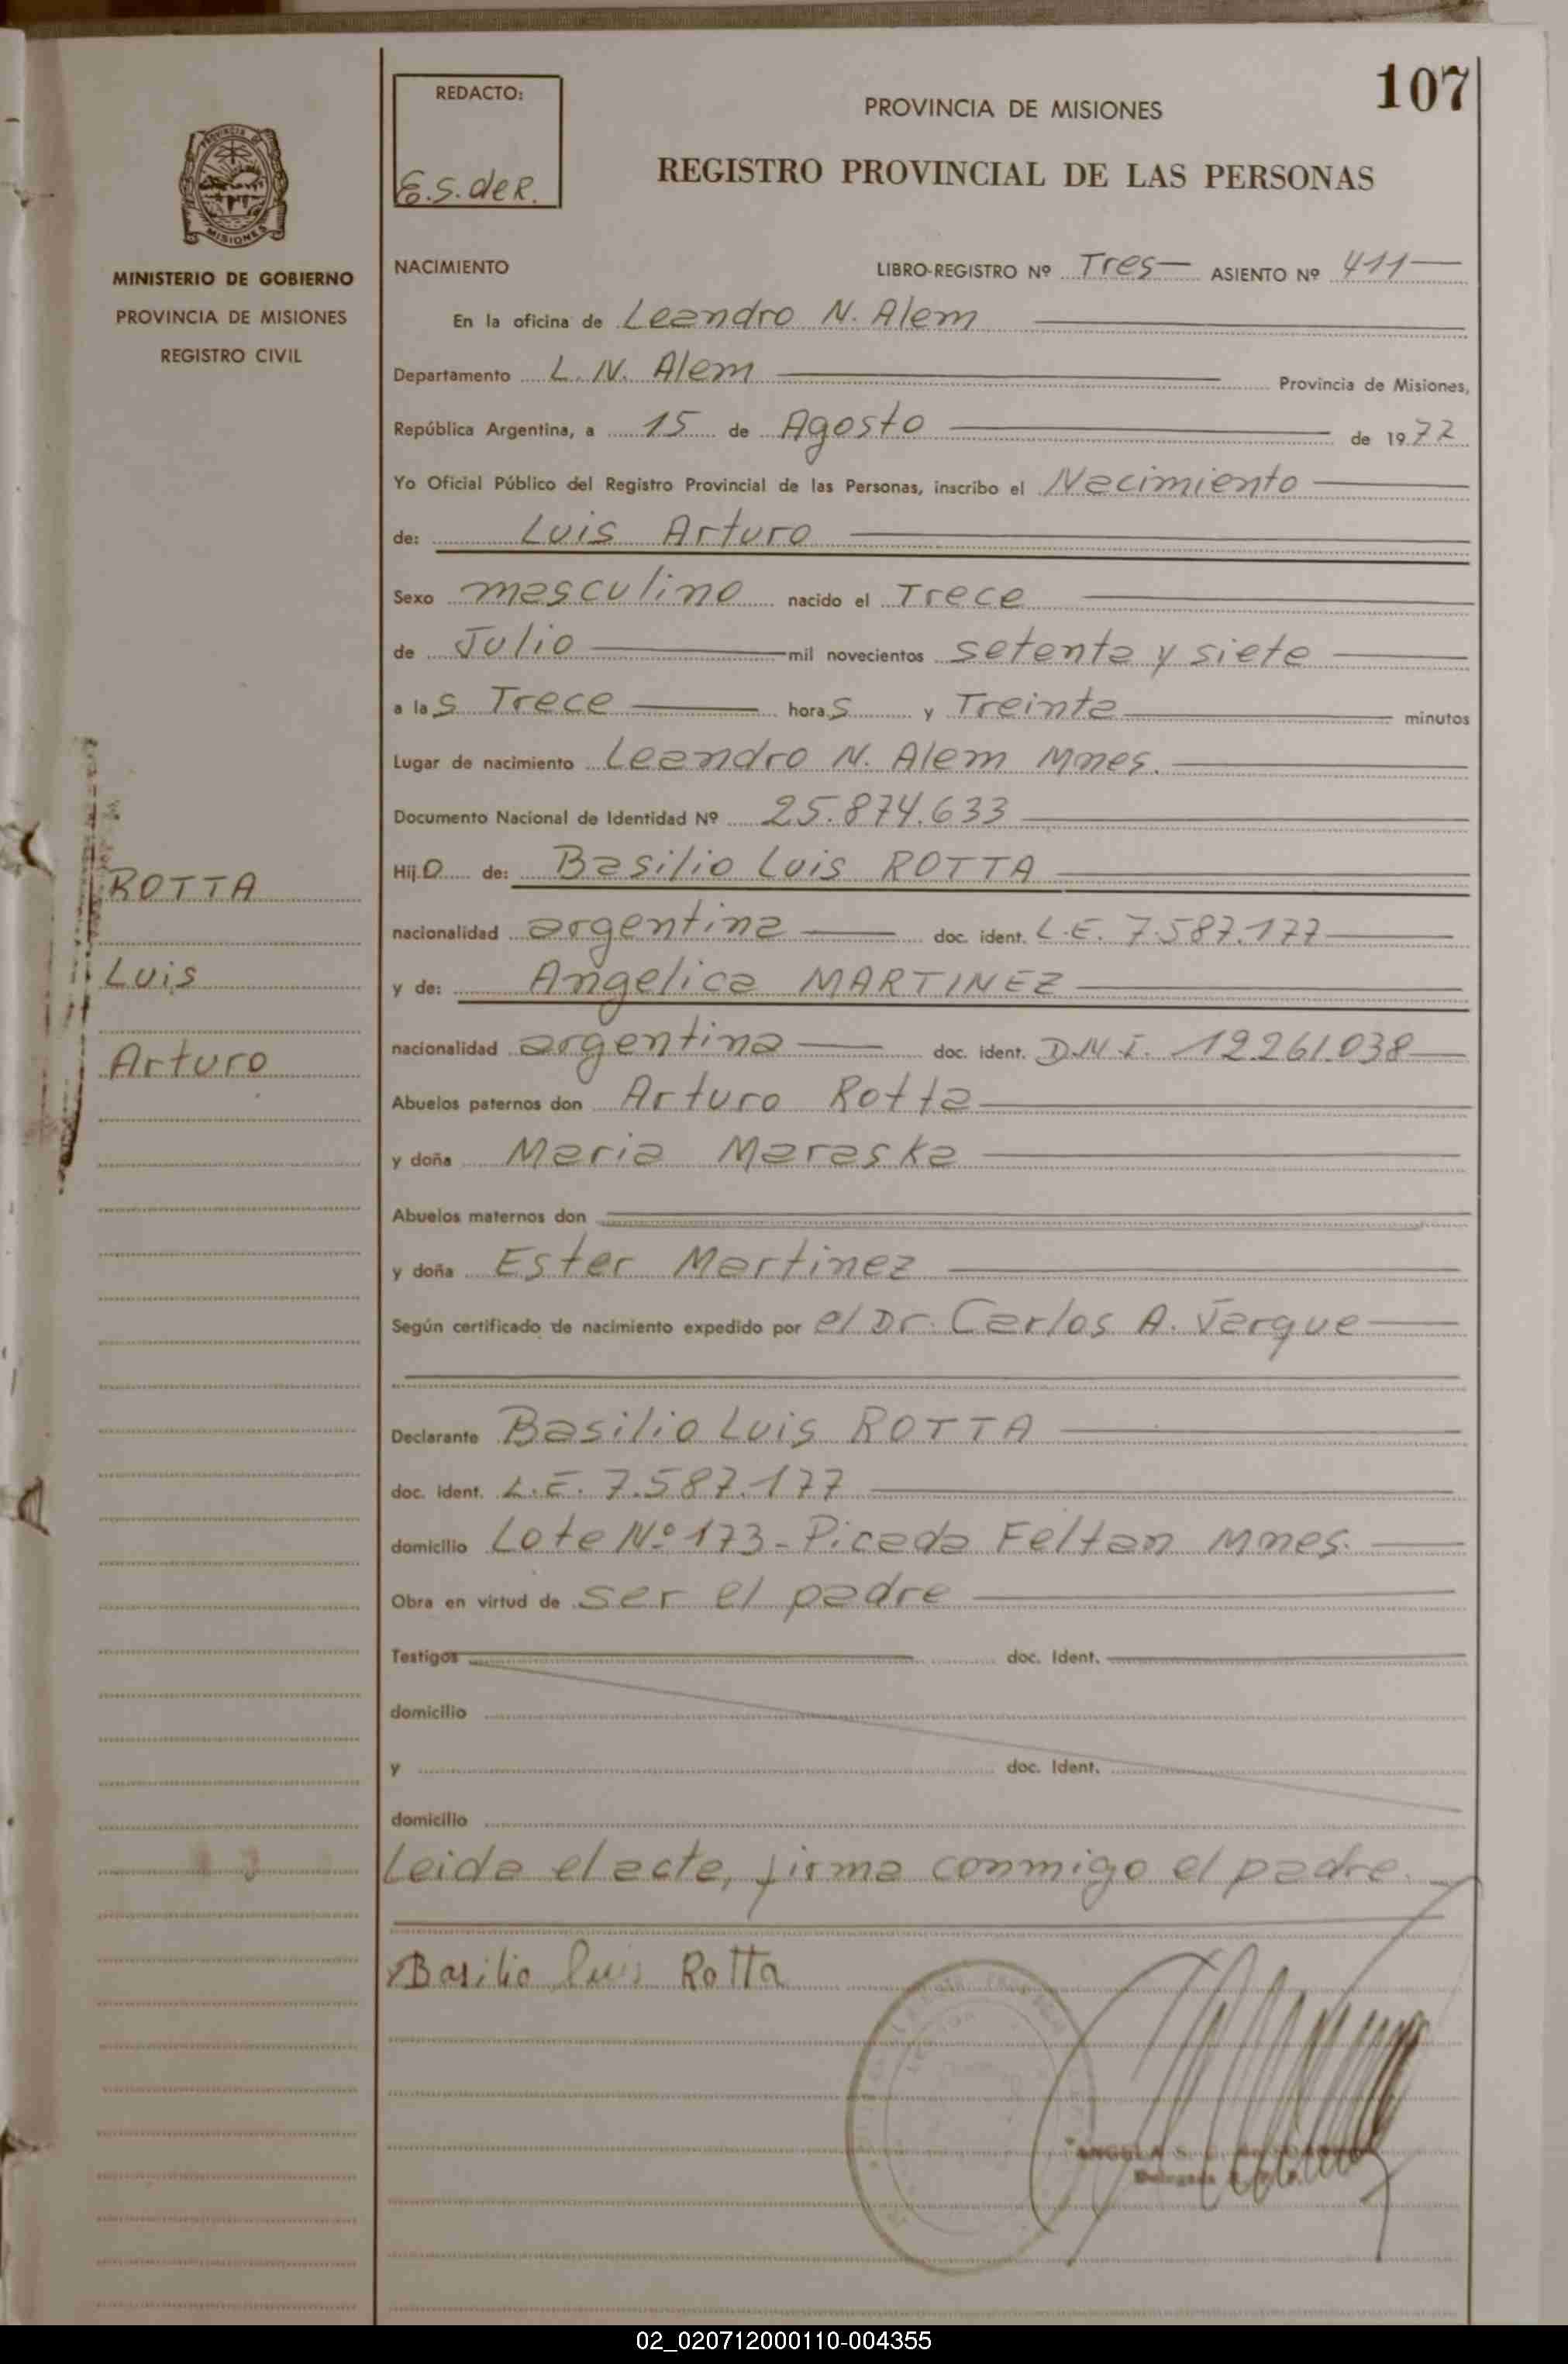 107
REDACTO:
E.S. de R.
PROVINCIA DE MISIONES
REGISTRO PROVINCIAL DE LAS PERSONAS
PROVINCIA DE
MISIONES
MINISTERIO DE GOBIERNO
PROVINCIA DE MISIONES
REGISTRO CIVIL
NACIMIENTO LIBRO-REGISTRO Nº Tres ASIENTO Nº 411
En la oficina de Leandro N. Alem
Departamento L. N. Alem Provincia de Misiones,
República Argentina, a 15 de Agosto de 1977
Yo Oficial Público del Registro Provincial de las Personas, inscribo el Nacimiento
de: Luis Arturo
Sexo masculino nacido el Trece
de Julio mil novecientos setenta y siete
a las Trece horas y Treinta minutos
Lugar de nacimiento Leandro N. Alem Mnes.
Documento Nacional de Identidad Nº 25.874.633
Hijo de: Basilio Luis ROTTA
nacionalidad argentina doc. ident. L.E. 7.587.177
y de: Angelica MARTINEZ
nacionalidad argentina doc. ident. D.N.I. 12.261.038
Abuelos paternos don Arturo Rotta
y doña Maria Maraska
Abuelos maternos don
y doña Ester Martinez
Según certificado de nacimiento expedido por el Dr. Carlos A. Vargue
Declarante Basilio Luis ROTTA
doc. ident. L.E. 7.587.177
domicilio Lote Nº 173 - Picada Feltan Mnes.
Obra en virtud de ser el padre
Testigos doc. Ident.
domicilio
y doc. Ident.
domicilio
Leida el acta, firma conmigo el padre.
Basilio Luis Rotta
ROTTA
Luis
Arturo
02_020712000110-004355